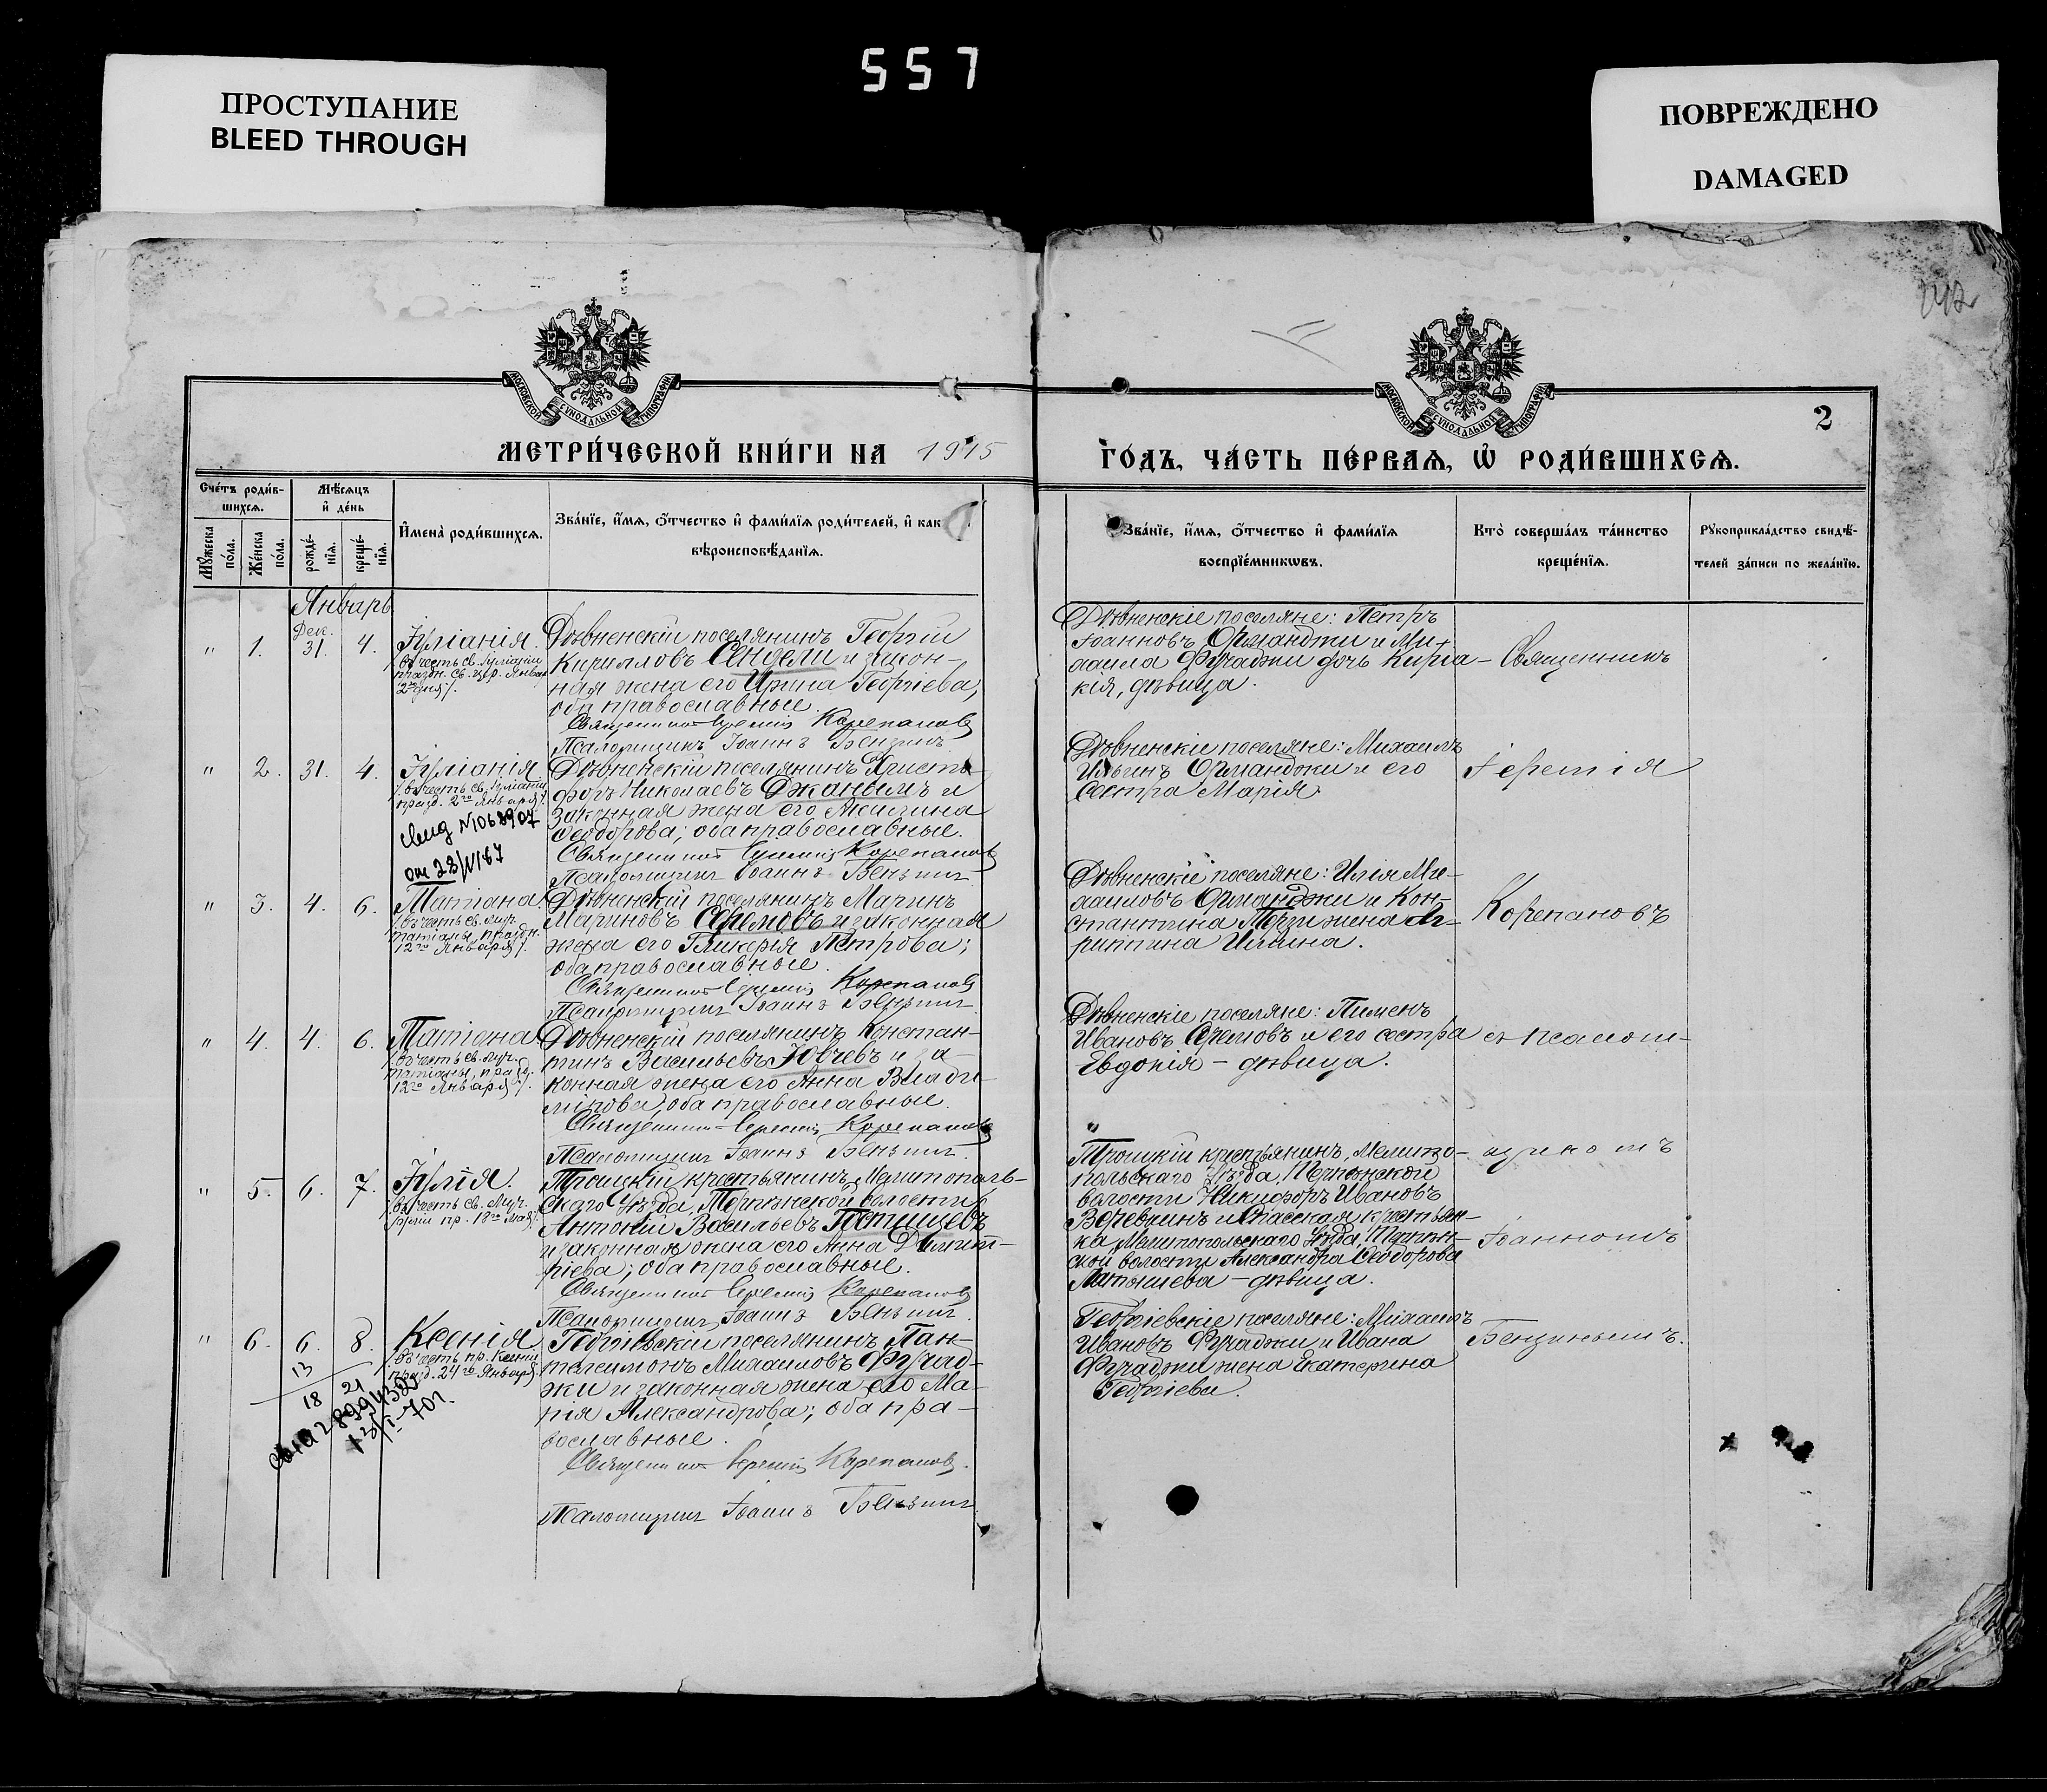 557
ПРОСТУПАНИЕ
BLEED THROUGH
ПОВРЕЖДЕНО
DAMAGED
242
МОСКОВСКОЙ СѴНОДАЛЬНОЙ ТИПОГРАФІИ
МОСКОВСКОЙ СѴНОДАЛЬНОЙ ТИПОГРАФІИ
2
МЕТРИ́ЧЕСКОЙ КНИ́ГИ НА 1915
ГО́ДЪ, ЧА́СТЬ ПЕ́РВАѦ, Ѡ҆ РОДИ́ВШИХСѦ.
Сче́тъ роди́в-
шихсѧ.
Мꙋ́жеска по́ла.
Же́нска по́ла.
Мѣ́сѧцъ
и҆ де́нь
рожде́-
нїѧ.
креще́-
нїѧ.
И҆мена̀ роди́вшихсѧ.
Зва́нїе, и҆́мѧ, ѻ҆́тчество и҆ фами́лїѧ роди́телей, и҆ как
вѣроисповѣ́данїѧ.
Зва́нїе, и҆́мѧ, ѻ҆́тчество и҆ фами́лїѧ
воспрїе́мникωвъ.
Кто̀ соверша́лъ та́инство
креще́нїѧ.
Рꙋкоприкла́дство свидѣ́-
телей за́писи по жела́нїю.
Январь
" 1. Дек. 31. 4. Іуліанія.
въ честь св. Іуліаніи
празн. св. цер. Январ
2го дня
Дѣвненскій поселянинъ Георгій
Кирилловъ Сендели и закон-
ная жена его Ирина Георгіева,
оба православные.
Священникъ Іеремія Корепановъ
Псаломщикъ Іоаннъ Бензинъ
Дѣвненскіе поселяне: Петръ
Іоанновъ Орманджи и Ми-
хаила Фучаджи дочь Кирiа-
кія, дѣвица.
Священникъ
" 2. 31. 4. Іуліанія.
въ честь св. Іуліаніи
празд. 2го Января
свид N1068907
от 28/VI67
Дѣвненскій поселянинъ Христо-
форъ Николаевъ Джанымъ и
законная жена его Акилина
Ѳеодорова; оба православные.
Священникъ Іеремія Корепановъ
Псаломщикъ Іоаннъ Бензинъ
Дѣвненскіе поселяне: Михаилъ
Ильинъ Орманджи и его
Сестра Марія
Іеремія
" 3. 4. 6. Татіана
въ честь св. муч.
Татіаны, праздн.
12го Января
Дѣвненскій поселянинъ Маринъ
Мариновъ Серемовъ и законная
жена его Гликерія Петрова;
оба православные.
Священникъ Іеремія Корепановъ
Псаломщикъ Іоаннъ Бензинъ
Дѣвненскіе поселяне: Илія Ми-
хаиловъ Орманджи и Кон-
стантина Терзи жена
Ильина.
Корепановъ
" 4. 4. 6. Татіана
въ честь св. муч.
Татіаны, празд.
12го Января
Дѣвненскій поселянинъ Констан-
тинъ Васильевъ Ювчевъ и за-
конная жена его Анна Влади-
мірова, оба православные.
Священникъ Іеремія Корепановъ
Псаломщикъ Іоаннъ Бензинъ.
Дѣвненскіе поселяне: Пименъ
Ивановъ Серемовъ и его сестра
Евдокія – дѣвица.
съ псалом-
" 5. 6. 7. Іулія.
въ честь св. Муч.
Іуліи пр. 18го мая
Троицкій крестьянинъ, Мелитополь-
скаго Уѣзда, волости
Антоній Васильевъ
и законная жена его Анна Димит-
ріева; оба православные.
Священникъ Іеремія Корепановъ
Псаломщикъ Іоаннъ Бензинъ
Троицкій крестьянинъ, Мелито-
польскаго Уѣзда,
волости Никифоръ Ивановъ
Веревкинъ и Спасская крестьян-
ка Мелитопольскаго Уѣзда,
ской волости Александра Ѳеодорова
Латышева – дѣвица.
щикомъ
Іоанномъ
" 6. 6. 8. Ксенія
въ честь пр. Ксеніи
празд. 24го Января
13
18 21
13/I–70г.
Георгіевскій поселянинъ Пан-
телеимонъ Михаиловъ Фучад-
жи и законная жена его Ма-
рія Александрова; оба пра-
вославные.
Священникъ Іеремія Корепановъ.
Псаломщикъ Іоаннъ Бензинъ
Георгіевскіе поселяне: Михаилъ
Ивановъ Фучаджи и Ивана
Фучаджи жена Екатерина
Георгіева.
Бензинымъ.